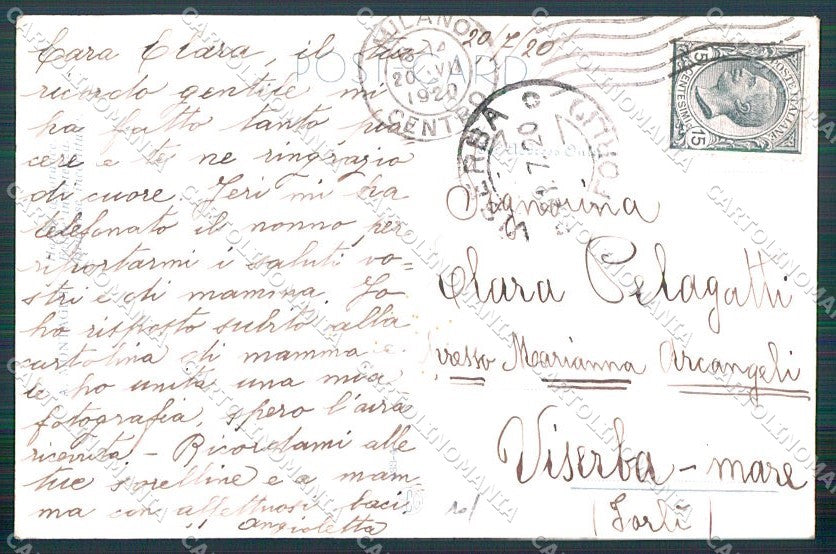 20/7/20
Cara Clara, il tuo
ricordo gentile mi
ha fatto tanto pia
cere e te ne ringrazio
di cuore. Ieri mi ha
telefonato il nonno per
riportarmi i saluti vo-
stri e di mamina. Io
ho risposto subito alla
cartolina di mamma e
le ho unita una mia
fotografia, spero l'avrà
ricevuta - Ricordami alle
tue sorelline e a mam
ma con affettuosi baci
Angioletta
POST CARD
MILANO
20 VII
1920
CENTRO
VISERBA
FORLI
7.20
POSTE ITALIANE
CENTESIMI 15
15
Signorina
Clara Pelagatti
presso Marianna Arcangeli
Viserba - mare
(Forlì)
CARTOLINOMANIA